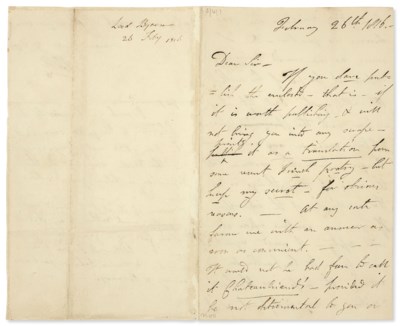 Lord Byron
26 Feby 1816
February 26th 1816.—
Dear Sir—
If you dare pub-
=lish the enclosed — that is — if
it is worth publishing, & will
not bring you into any scrape —
print
it as a translation from
some recent French poetry — but
keep my secret — for obvious
reasons. — At any rate
favour me with an answer as
soon as convenient. — — —
It would not be bad fun to call
it Chateaubriand's — provided it
be not detrimental to you or